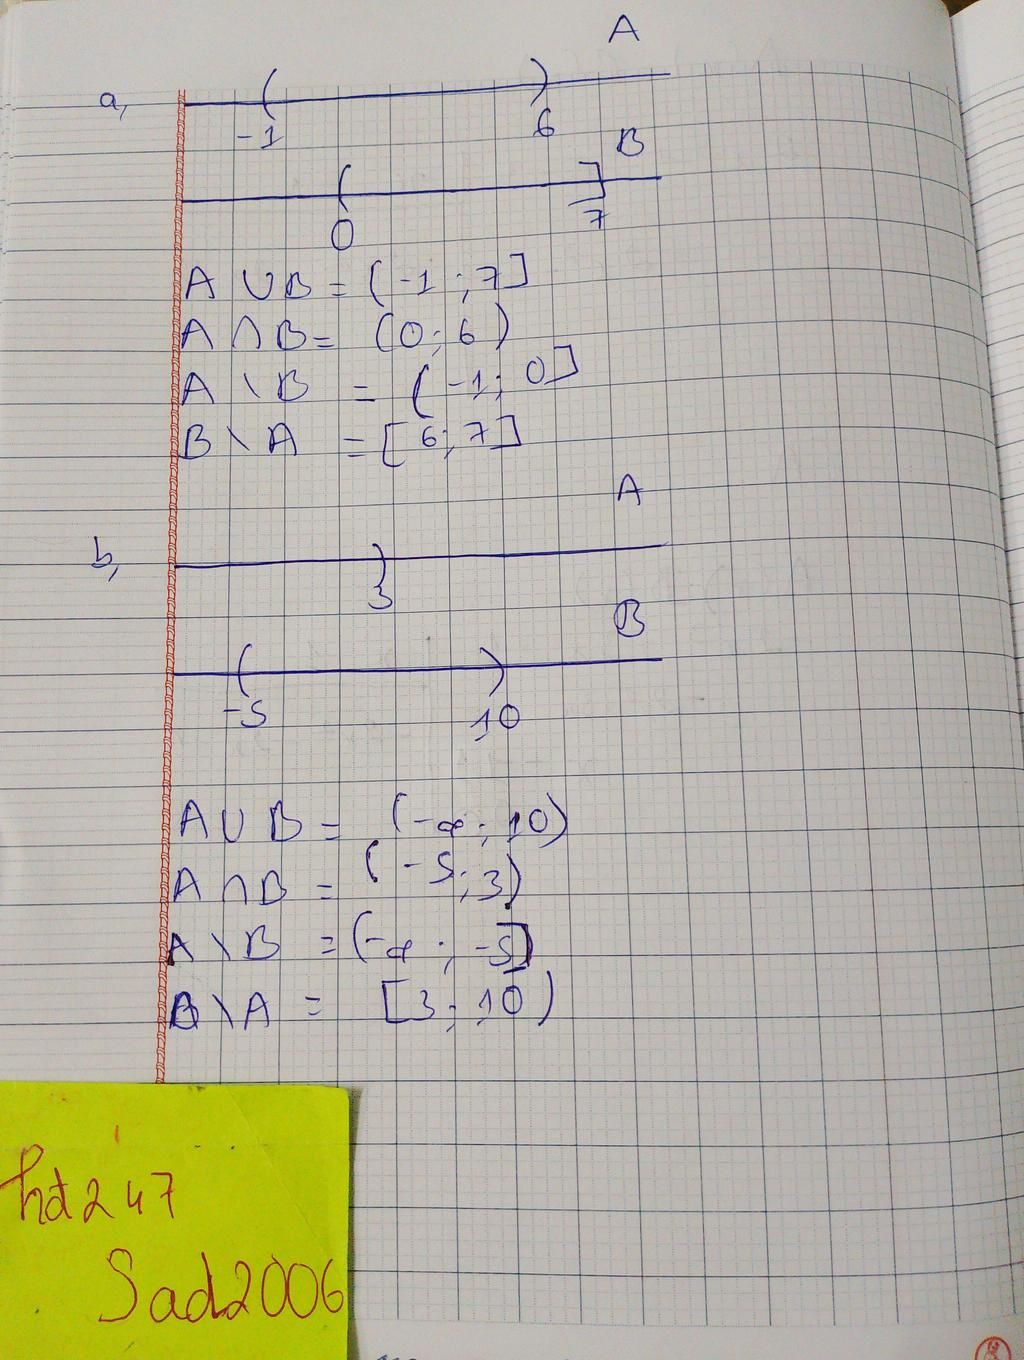 A
a,
-1 6
B
0 7
A ∪ B = (-1 ; 7]
A ∩ B = (0 ; 6)
A \ B = (-1 ; 0]
B \ A = [6 ; 7]
A
b,
3
B
-5 10
A ∪ B = (-∞ ; 10)
A ∩ B = (-5 ; 3)
A \ B = (-∞ ; -5]
B \ A = [3 ; 10)
hd247
Sad2006